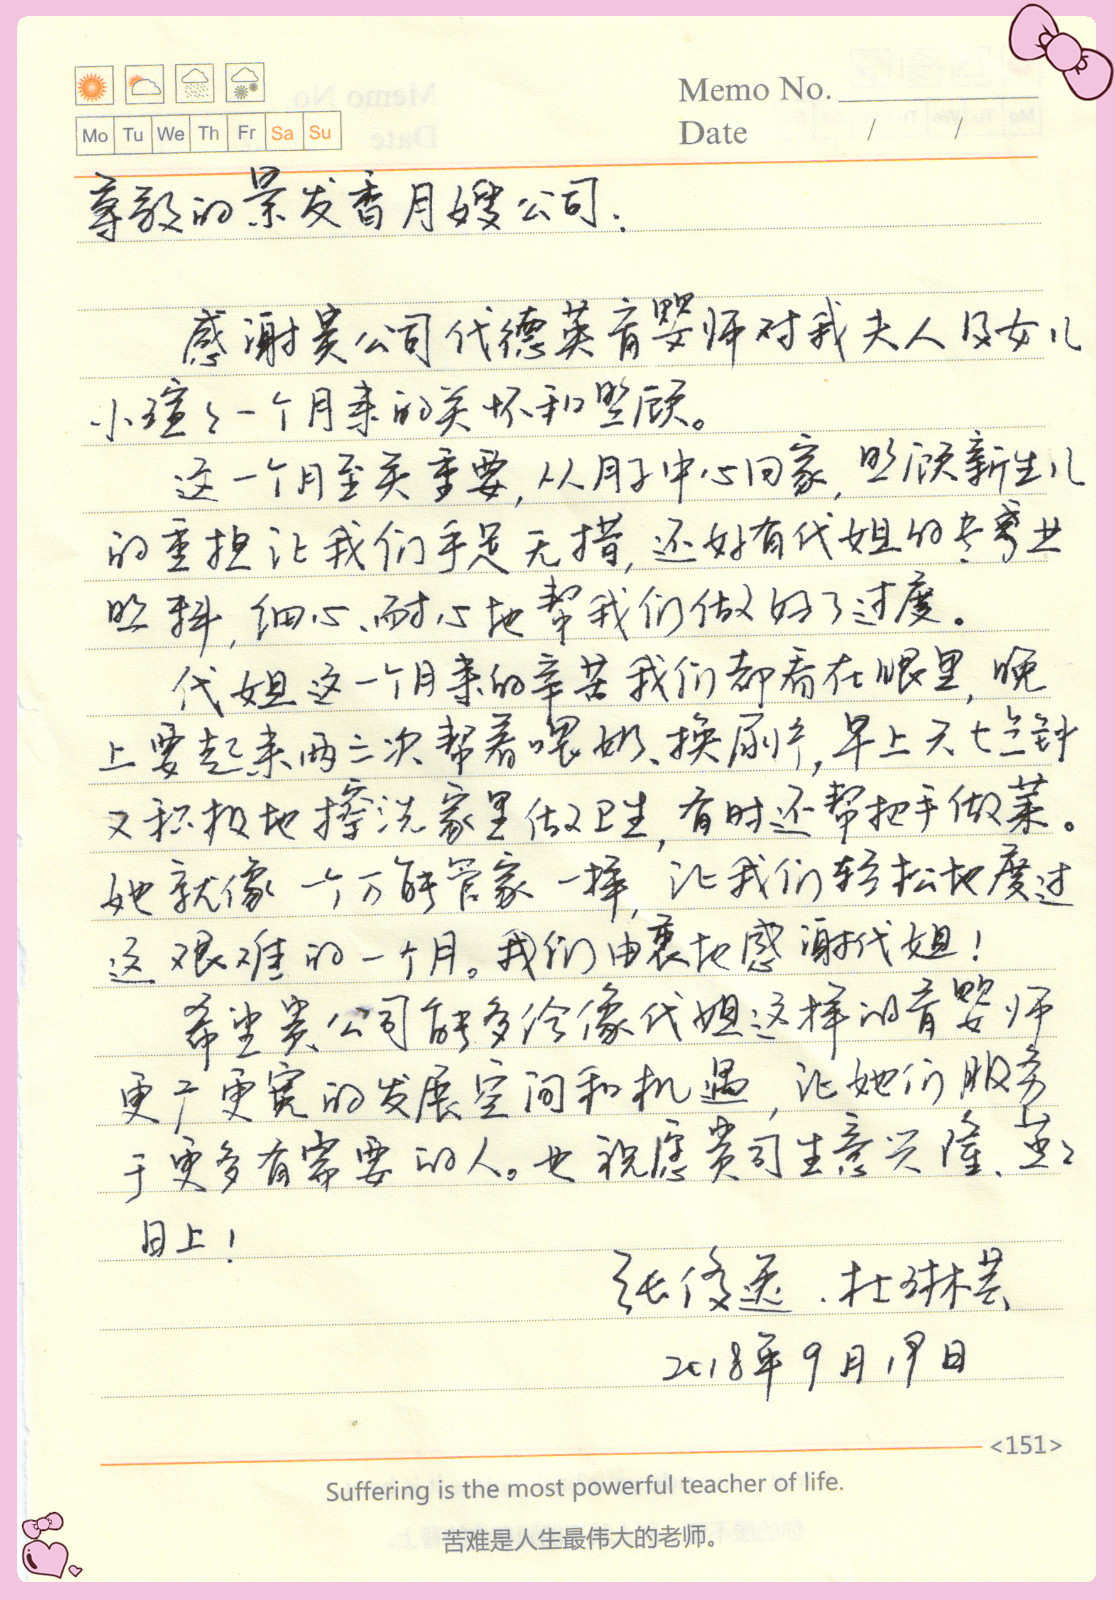 Memo No.
Mo Tu We Th Fr Sa Su
Date / /
尊敬的景发香月嫂公司：
感谢贵公司代德英育婴师对我夫人及女儿
小瑄々一个月来的关怀和照顾。
这一个月至关重要，从月子中心回家，照顾新生儿
的重担让我们手足无措，还好有代姐的专业
照料，细心、耐心地帮我们做好了过度。
代姐这一个月来的辛苦我们都看在眼里，晚
上要起来两三次帮着喂奶、换尿片，早上六七点钟
又积极地擦洗家里做卫生，有时还帮把手做菜。
她就像一个万能管家一样，让我们轻松地度过
这艰难的一个月。我们由衷地感谢代姐！
希望贵公司能多给像代姐这样的育婴师
更广更宽的发展空间和机遇，让她们服务
于更多有需要的人。也祝愿贵司生意兴隆、蒸々
日上！
张俊 、杜琳
2018年9月19日
<151>
Suffering is the most powerful teacher of life.
苦难是人生最伟大的老师。